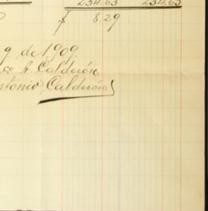 234.63 234.63
$ 8.29
9 de 1909
A. Calderón
Antonio Calderón